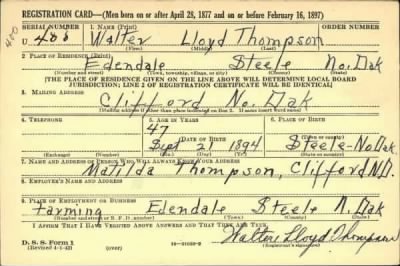 REGISTRATION CARD—(Men born on or after April 28, 1877 and on or before February 16, 1897)
SERIAL NUMBER 1. NAME (Print) ORDER NUMBER
U 486 Walter Lloyd Thompson
(First) (Middle) (Last)
2. PLACE OF RESIDENCE (Print)
Edendale Steele No. Dak
(Number and street) (Town, township, village, or city) (County) (State)
[THE PLACE OF RESIDENCE GIVEN ON THE LINE ABOVE WILL DETERMINE LOCAL BOARD
JURISDICTION; LINE 2 OF REGISTRATION CERTIFICATE WILL BE IDENTICAL]
3. MAILING ADDRESS
Clifford No. Dak
4. TELEPHONE 5. AGE IN YEARS 6. PLACE OF BIRTH
47
DATE OF BIRTH (Town or county)
Sept 21 1894 Steele - No. Dak
(Exchange) (Number) (Mo.) (Day) (Yr.) (State or country)
7. NAME AND ADDRESS OF PERSON WHO WILL ALWAYS KNOW YOUR ADDRESS
Matilda Thompson, Clifford N.D.
8. EMPLOYER'S NAME AND ADDRESS
9. PLACE OF EMPLOYMENT OR BUSINESS
Farming Edendale Steele N. Dak
(Number and street or R. F. D. number) (Town) (County) (State)
I AFFIRM THAT I HAVE VERIFIED ABOVE ANSWERS AND THAT THEY ARE TRUE.
D. S. S. Form 1
(Revised 4-1-42) (over) Walter Lloyd Thompson
(Registrant's signature)